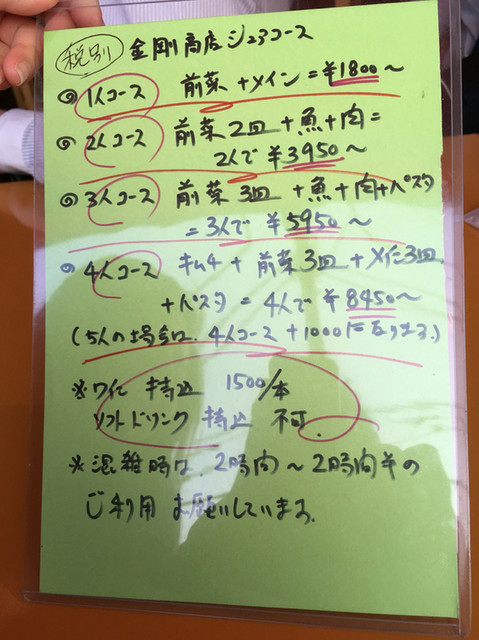 税別 金剛商店シェアコース
1人コース 前菜+メイン=¥1800〜
2人コース 前菜2皿+魚+肉=
2人で¥3950〜
3人コース 前菜3皿+魚+肉+パスタ
=3人で¥5950〜
4人コース キムチ+前菜3皿+メイン3皿
+パスタ=4人で¥8450〜
(5人の場合は、4人コース+1000になります。)
※ワイン持込 1500/本
ソフトドリンク持込 不可。
※混雑時は、2時間〜2時間半の
ご利用お願いしています。